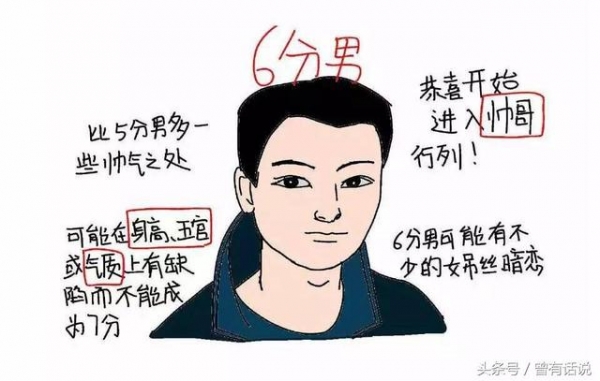 6分男
恭喜开始
进入帅哥
行列！
比5分男多一
些帅气之处
可能在身高、五官
或气质上有缺
陷而不能成
为7分
6分男可能有不
少的女吊丝暗恋
头条号／曾有话说